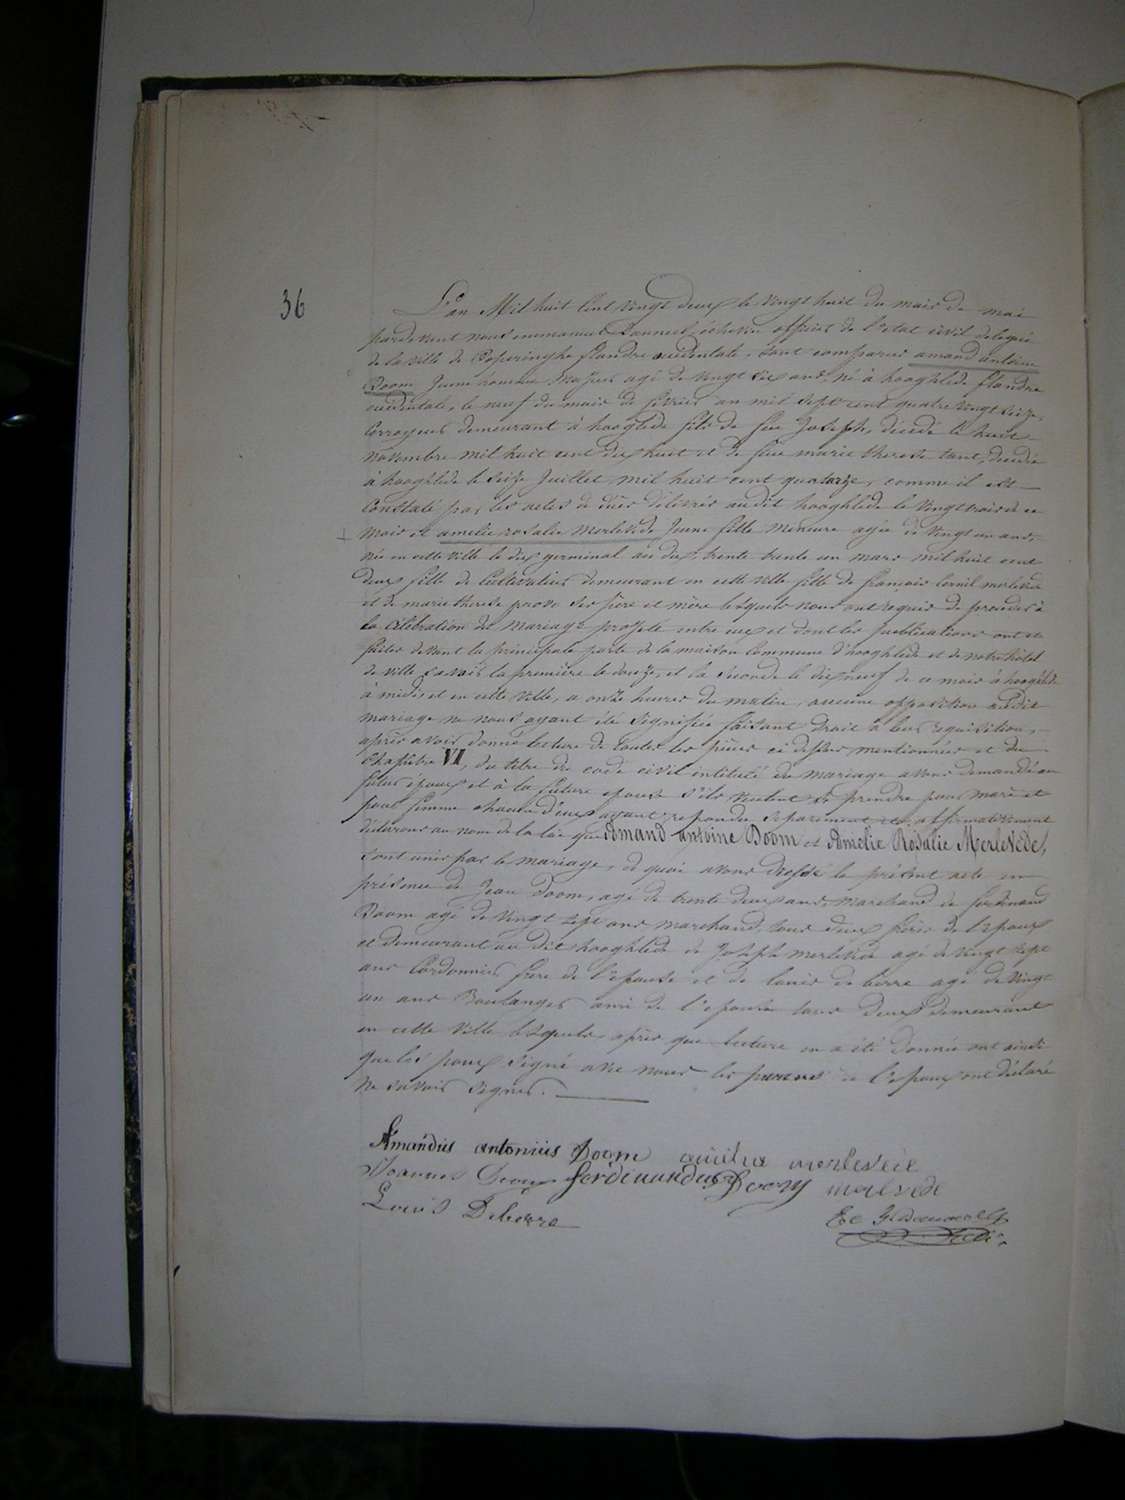 36
L'an Mil huit Cent vingt deux le vingt huit du mois de mai
pardevant nous emmanuel échevin officier de l'état civil delegué
de la ville de Poperinghe flandre occidentale, sont comparus amand antoine
Doom, jeune homme majeur agé de vingt six ans, né à hooghlede flandre
occidentale, le neuf du mois de fevrier an mil sept cent quatre vingt seize,
Corroyeur demeurant à hooghlede fils de feu Joseph, décédé le huit
novembre mil huit cent dix huit et de feue marie therese tant, decedée
à hooghlede le seize Juillet mil huit cent quatorze, comme il est
Constaté par les actes de décès délivrés audit hooghlede le vingt trois de ce
mois et amelie rosalie Merlevede Jeune fille mineure agée de vingt un ans,
née en cette ville le dix germinal an dix, trente un mars mil huit cent
deux fille de Cultivateur demeurant en cette ville fille de françois Cornil merlevede
et de marie therese ses père et mère lesquels nous ont requis de proceder à
la Célébration du Mariage projeté entre eux et dont les publications ont été
faites devant la principale porte de la maison Commune d'hooghlede et de notre hôtel
de ville savoir la première le douze, et la seconde le dix neuf de ce mois à hooghlede
à midi, et en cette ville, a onze heures du matin, aucune opposition audit
mariage ne nous ayant été signifiée faisant droit a leur requisition,
après avoir donné lecture de toutes les pièces ci dessus mentionnées et du
Chapitre VI, du titre du code civil intitulé du mariage avons demandé au
futur époux et à la future epouse s'ils veulent se prendre pour mari et
pour femme chacun d'eux ayant repondu separement et affirmativement
déclarons au nom de la loi que Amand antoine Doom et Amelie Rosalie Merlevede,
sont unis par le mariage, de quoi avons dressé le présent acte en
présence de Jean Doom, agé de trente deux ans marchand de ferdinand
Doom agé de vingt sept ans marchand, tous deux frères de l'epoux
et demeurant au dit hooghlede de Joseph merlevede agé de vingt sept
ans Cordonnier frère de l'epouse et de louis de berre agé de vingt
un ans Boulanger ami de l'epouse tous deux demeurant
en cette ville lesquels, après que lecture en a été donnée ont ainsi
que les epoux signé avec nous les parens de l'epouse ont déclaré
ne savoir signer.
Amandus antonius Doom amelia merlevede
Joannes Doom ferdinandus Doom merlevede
Louis Deberre